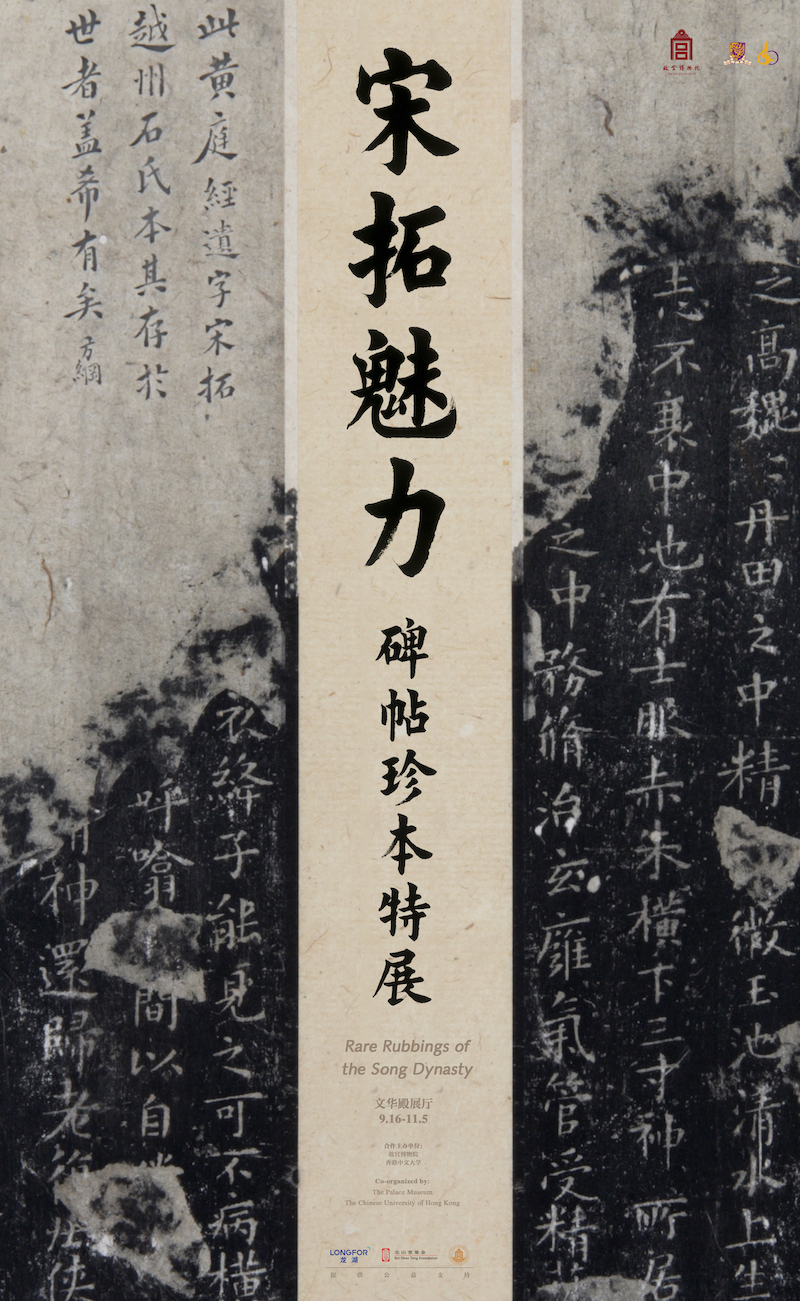 宋拓魅力
碑帖珍本特展
Rare Rubbings of
the Song Dynasty
文华殿展厅
9.16-11.5
合作主办单位:
故宫博物院
香港中文大学
Co-organized by:
The Palace Museum
The Chinese University of Hong Kong
LONGFOR
龙湖
北山堂基金
Bei Shan Tang Foundation
故宫博物院
之高魏〻丹田之中精
微玉池清水上生
志不衰中池有士服赤朱横下三寸神
所居
之中務脩治玄雍氣管受精
此黄庭經遺字宋拓
越州石氏本其存於
世者蓋希有矣 方綱
衣絳子能見之可不病横
呼噏
間以自
神還歸老復
侠